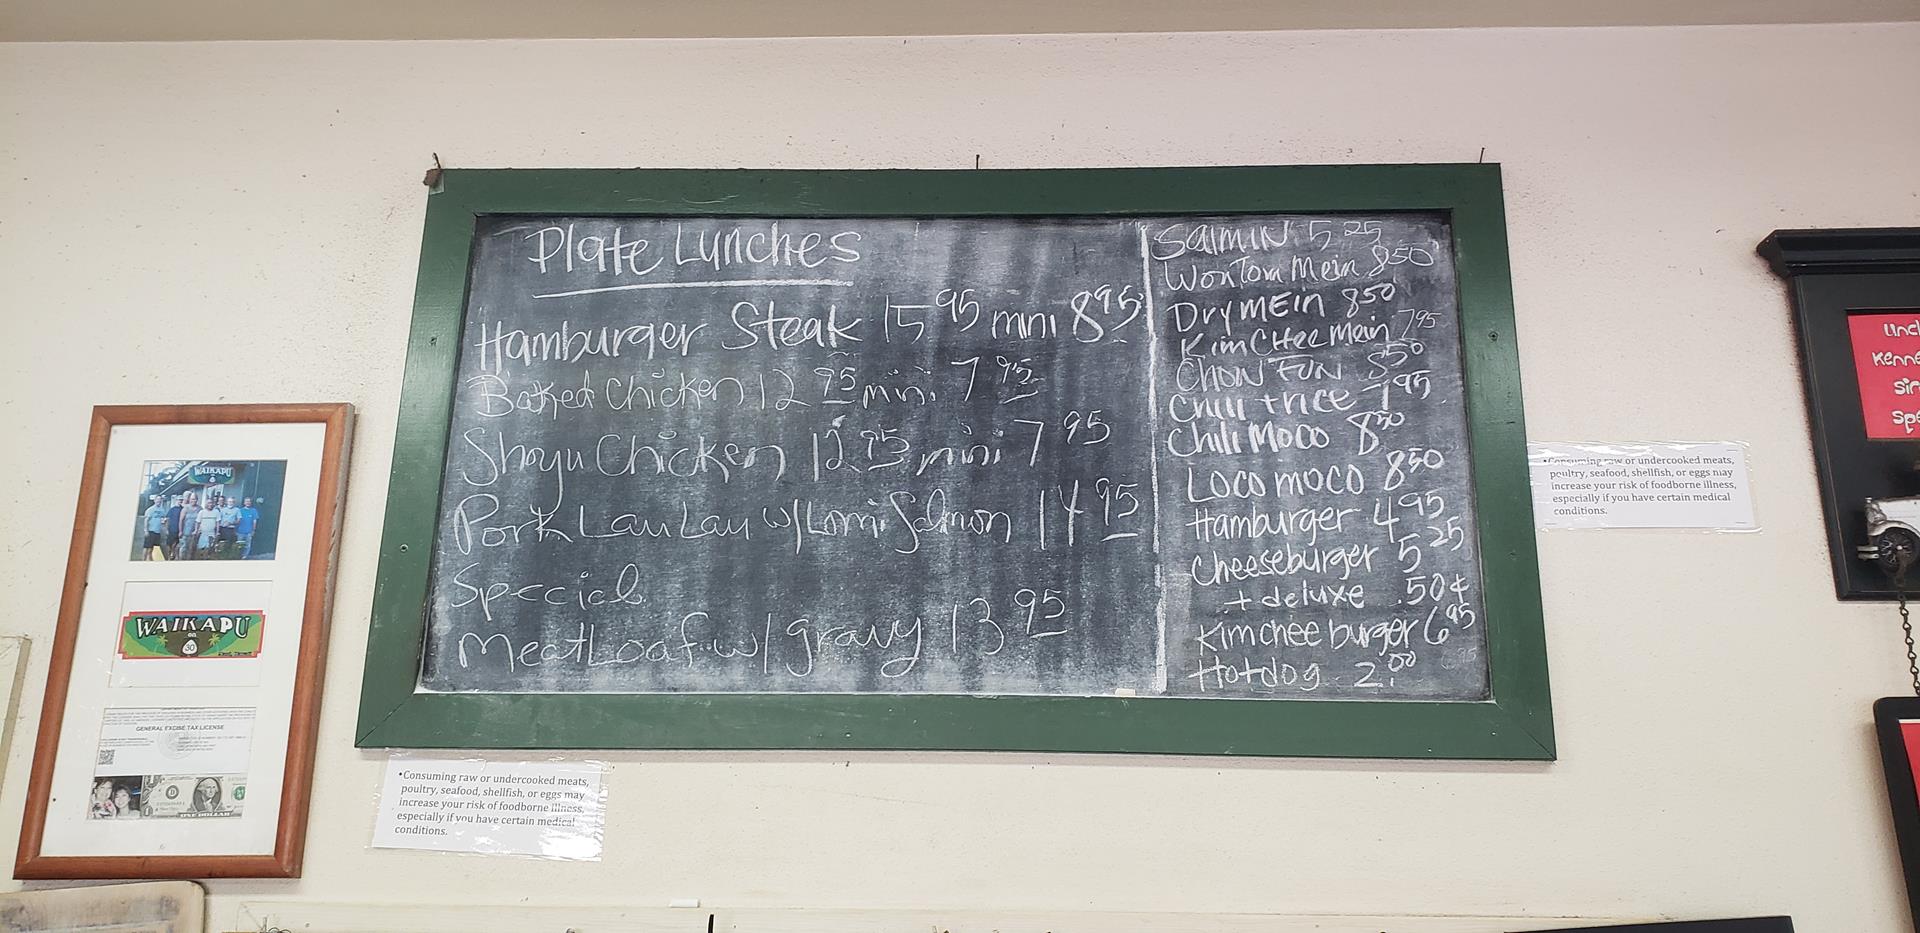 Plate Lunches
Hamburger Steak 15 95 mini 8 95
Baked Chicken 12 95 mini 7 95
Shoyu Chicken 12 95 mini 7 95
Pork Lau Lau w/ Lomi Salmon 14 95
Special
Meat Loaf w/ gravy 13 95
Saimin 5 25
Won Ton Mein 8 50
Dry Mein 8 50
Kim Chee Mein 7 95
Chow Fun 8 50
Chili + rice 7 95
Chili Moco 8 50
Loco moco 8 50
Hamburger 4 95
Cheeseburger 5 25
+ deluxe .50¢
Kimchee burger 6 95
Hotdog 2.00
WAIKAPU
WAIKAPU
on
30
GENERAL EXCISE TAX LICENSE
ONE DOLLAR
•Consuming raw or undercooked meats,
poultry, seafood, shellfish, or eggs may
increase your risk of foodborne illness,
especially if you have certain medical
conditions.
•Consuming raw or undercooked meats,
poultry, seafood, shellfish, or eggs may
increase your risk of foodborne illness,
especially if you have certain medical
conditions.